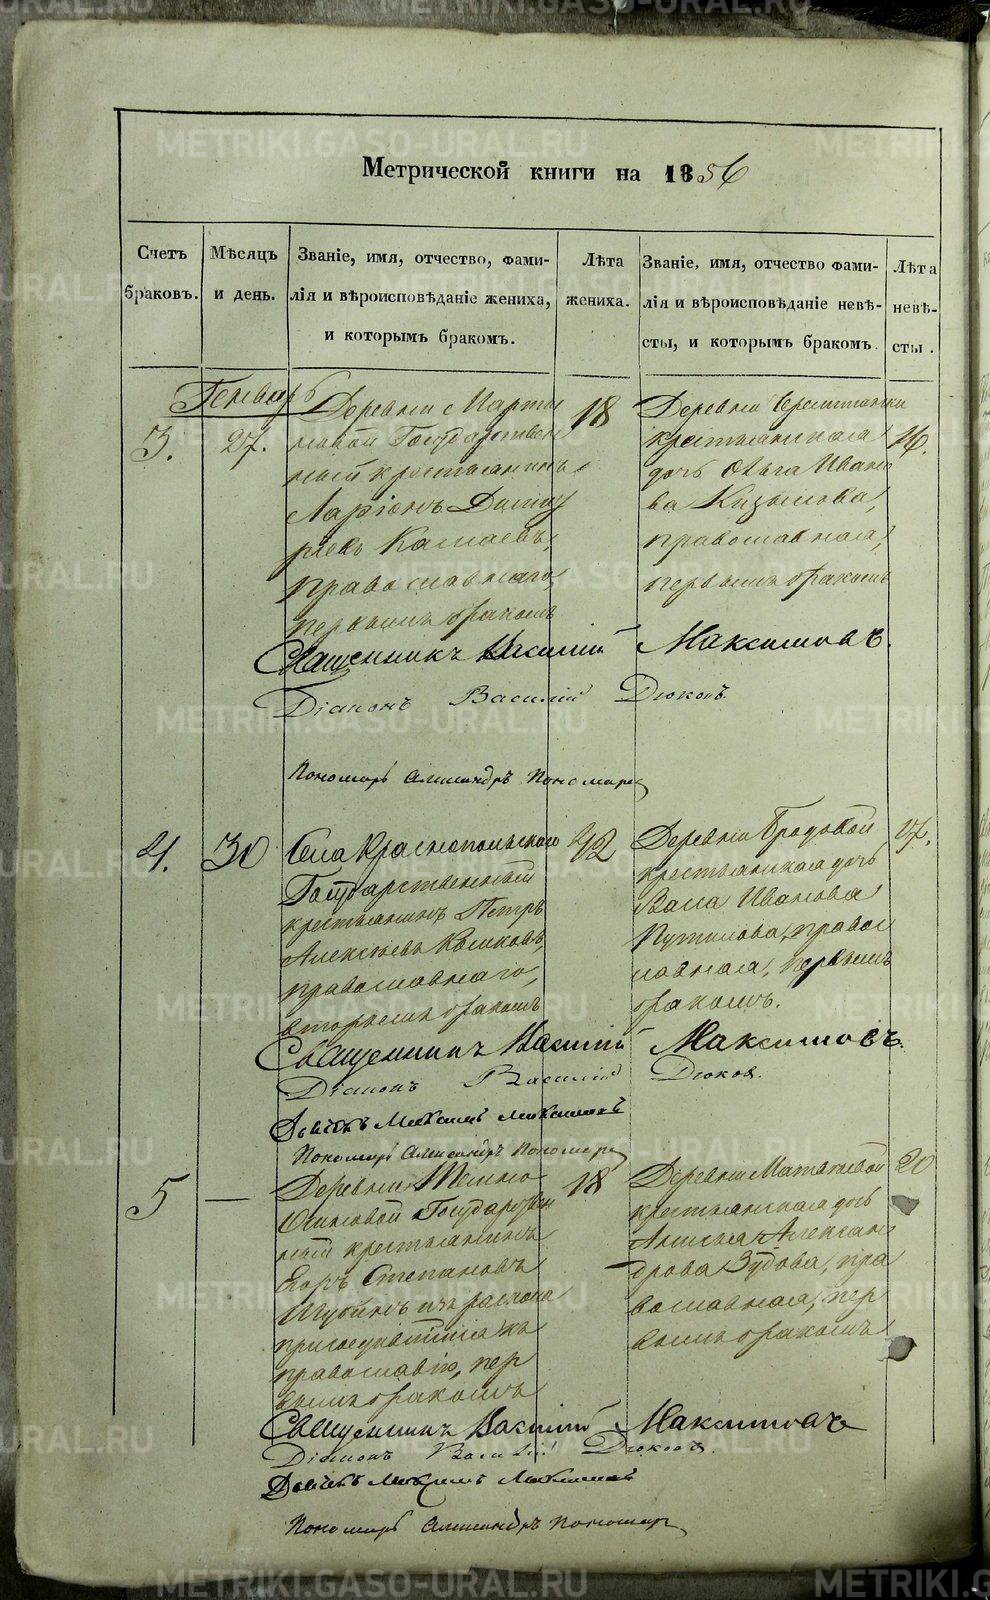 Метрической книги на 1856
Счетъ браковъ.
Мѣсяцъ и день.
Званіе, имя, отчество, фами-
лія и вѣроисповѣданіе жениха,
и которымъ бракомъ.
Лѣта жениха.
Званіе, имя, отчество фами-
лія и вѣроисповѣданіе невѣ-
сты, и которымъ бракомъ.
Лѣта невѣ-
сты.
Генварь
3.
27.
Деревни Марты
новой Государствен
ный крестьянинъ
Ларіонъ Дмит
ріевъ
православнаго,
первымъ бракомъ
18
Деревни
крестьянская
дочь Ольга Ивано
ва
православная,
первымъ бракомъ
Священникъ Василій Максимовъ.
Діаконъ Василій Дюковъ.
Пономарь Александръ Пономарев
4.
30
Села Краснопольскаго
Государственный
крестьянинъ Петръ
Алексѣевъ
православнаго,
вторымъ бракомъ
42
Деревни Бродовой
крестьянская дочь
Ивановна
Путилова, правос
лавная, первымъ
бракомъ.
Священникъ Василій Максимовъ.
Діаконъ Василій Дюков.
Дьячокъ Максимъ Максимовъ
Пономарь Александръ Пономарев
5
—
Деревни Темно
Осиновой Государствен
ный крестьянинъ
Егоръ Степановъ
изъ раскола
къ
православію, пер
вымъ бракомъ
18
Деревни Матвеевой
крестьянская дочь
Анисья Алексан
дрова Зудова, пра
вославная, пер
вымъ бракомъ
20
Священникъ Василій Максимовъ
Діаконъ Василій Дюковъ.
Дьячокъ Максимъ Максимовъ
Пономарь Александръ Пономарев
METRIKI.GASO-URAL.RU